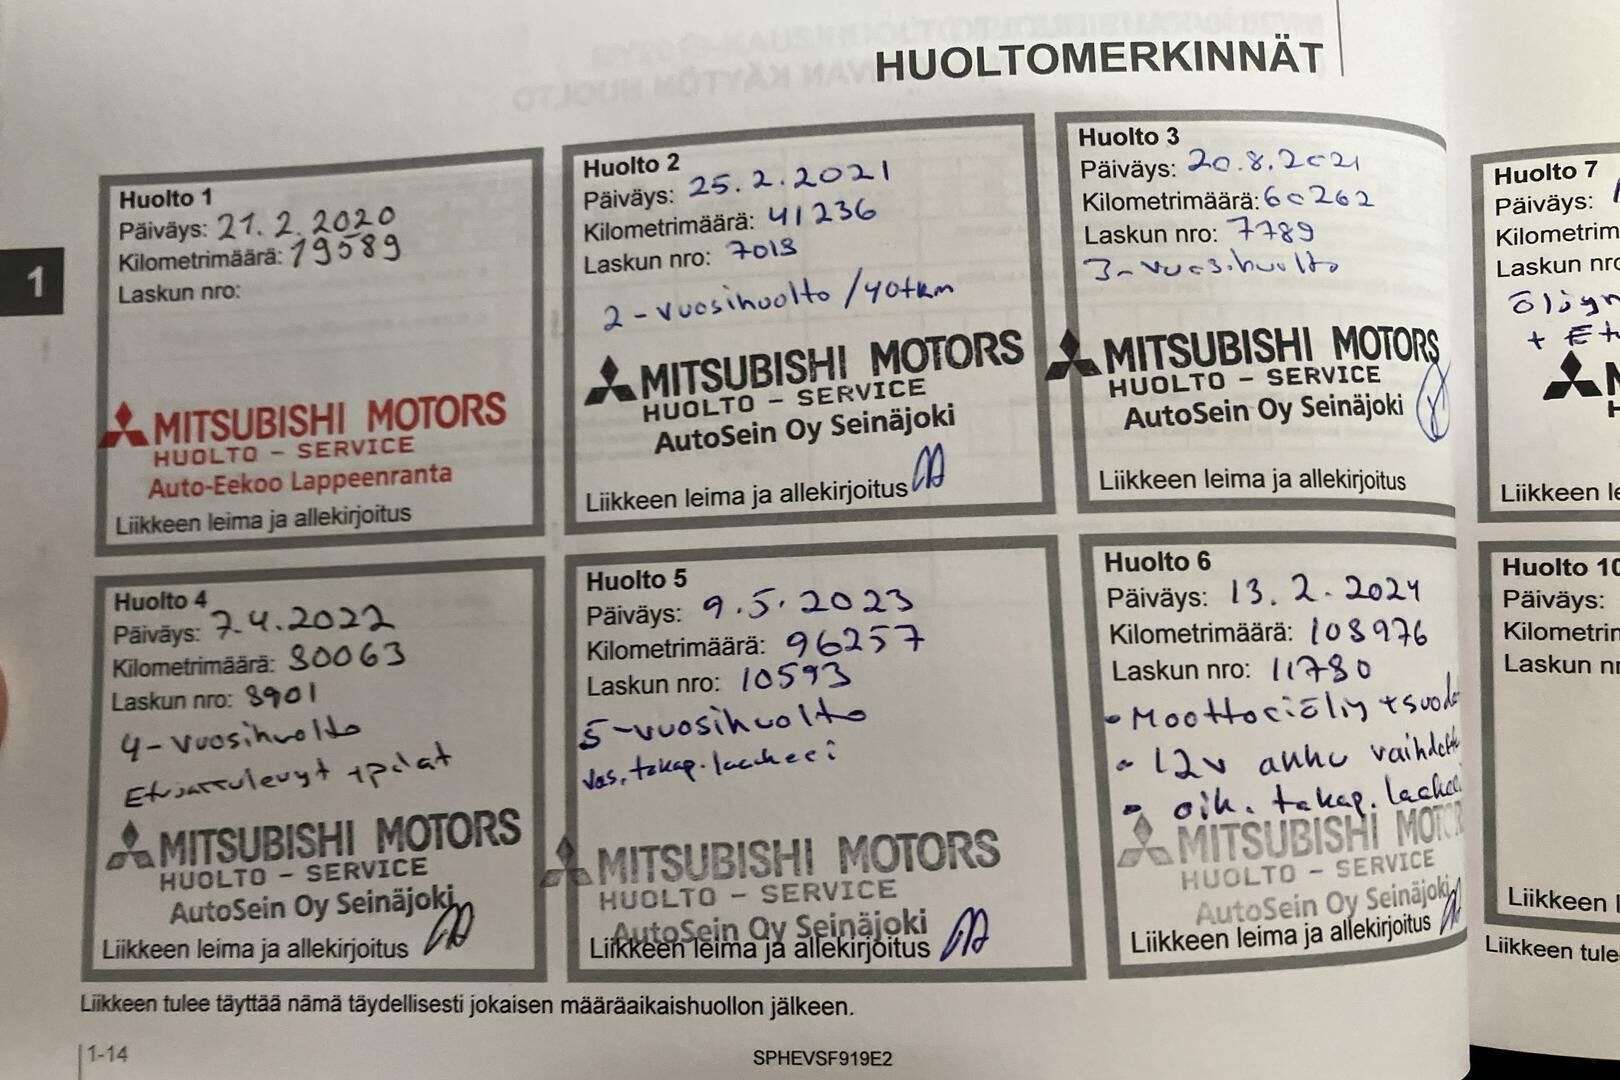 HUOLTOMERKINNÄT
1
Huolto 1
Päiväys: 21.2.2020
Kilometrimäärä: 19589
Laskun nro:
MITSUBISHI MOTORS
HUOLTO - SERVICE
Auto-Eekoo Lappeenranta
Liikkeen leima ja allekirjoitus
Huolto 2
Päiväys: 25.2.2021
Kilometrimäärä: 41236
Laskun nro: 7018
2-vuosihuolto /40tkm
MITSUBISHI MOTORS
HUOLTO - SERVICE
AutoSein Oy Seinäjoki
Liikkeen leima ja allekirjoitus
Huolto 3
Päiväys: 20.8.2021
Kilometrimäärä: 60262
Laskun nro: 7789
3-vuosihuolto
MITSUBISHI MOTORS
HUOLTO - SERVICE
AutoSein Oy Seinäjoki
Liikkeen leima ja allekirjoitus
Huolto 4
Päiväys: 7.4.2022
Kilometrimäärä: 80063
Laskun nro: 8901
4-vuosihuolto
Etujarrulevyt + palat
MITSUBISHI MOTORS
HUOLTO - SERVICE
AutoSein Oy Seinäjoki
Liikkeen leima ja allekirjoitus
Huolto 5
Päiväys: 9.5.2023
Kilometrimäärä: 96257
Laskun nro: 10593
5-vuosihuolto
vas. takap. laakeri
MITSUBISHI MOTORS
HUOLTO - SERVICE
AutoSein Oy Seinäjoki
Liikkeen leima ja allekirjoitus
Huolto 6
Päiväys: 13.2.2024
Kilometrimäärä: 108976
Laskun nro: 11780
- Moottoriöljy + suod
- 12v akku vaihdettu
- oik. takap. laakeri
MITSUBISHI MOTOR
HUOLTO - SERVICE
AutoSein Oy Seinäjoki
Liikkeen leima ja allekirjoitus
Huolto 7
Päiväys:
Kilometrim
Laskun nro
öljyn
+ Et
Liikkeen le
Huolto 10
Päiväys:
Kilometrim
Laskun nr
Liikkeen l
Liikkeen tulee
Liikkeen tulee täyttää nämä täydellisesti jokaisen määräaikaishuollon jälkeen.
1-14
SPHEVSF919E2